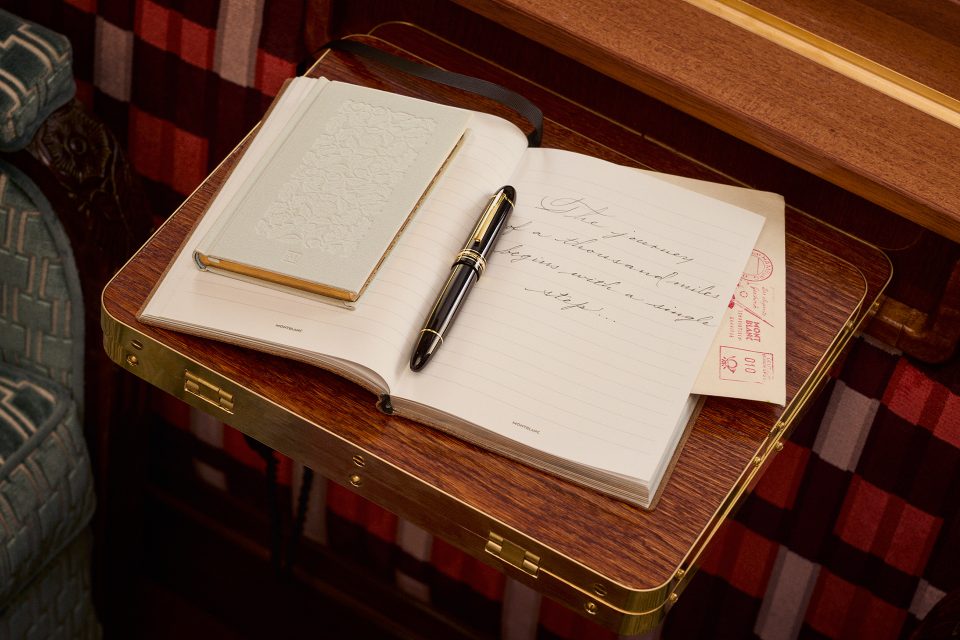 The journey
of a thousand miles
begins with a single
step...
MONTBLANC
MONTBLANC
MONT
BLANC
010